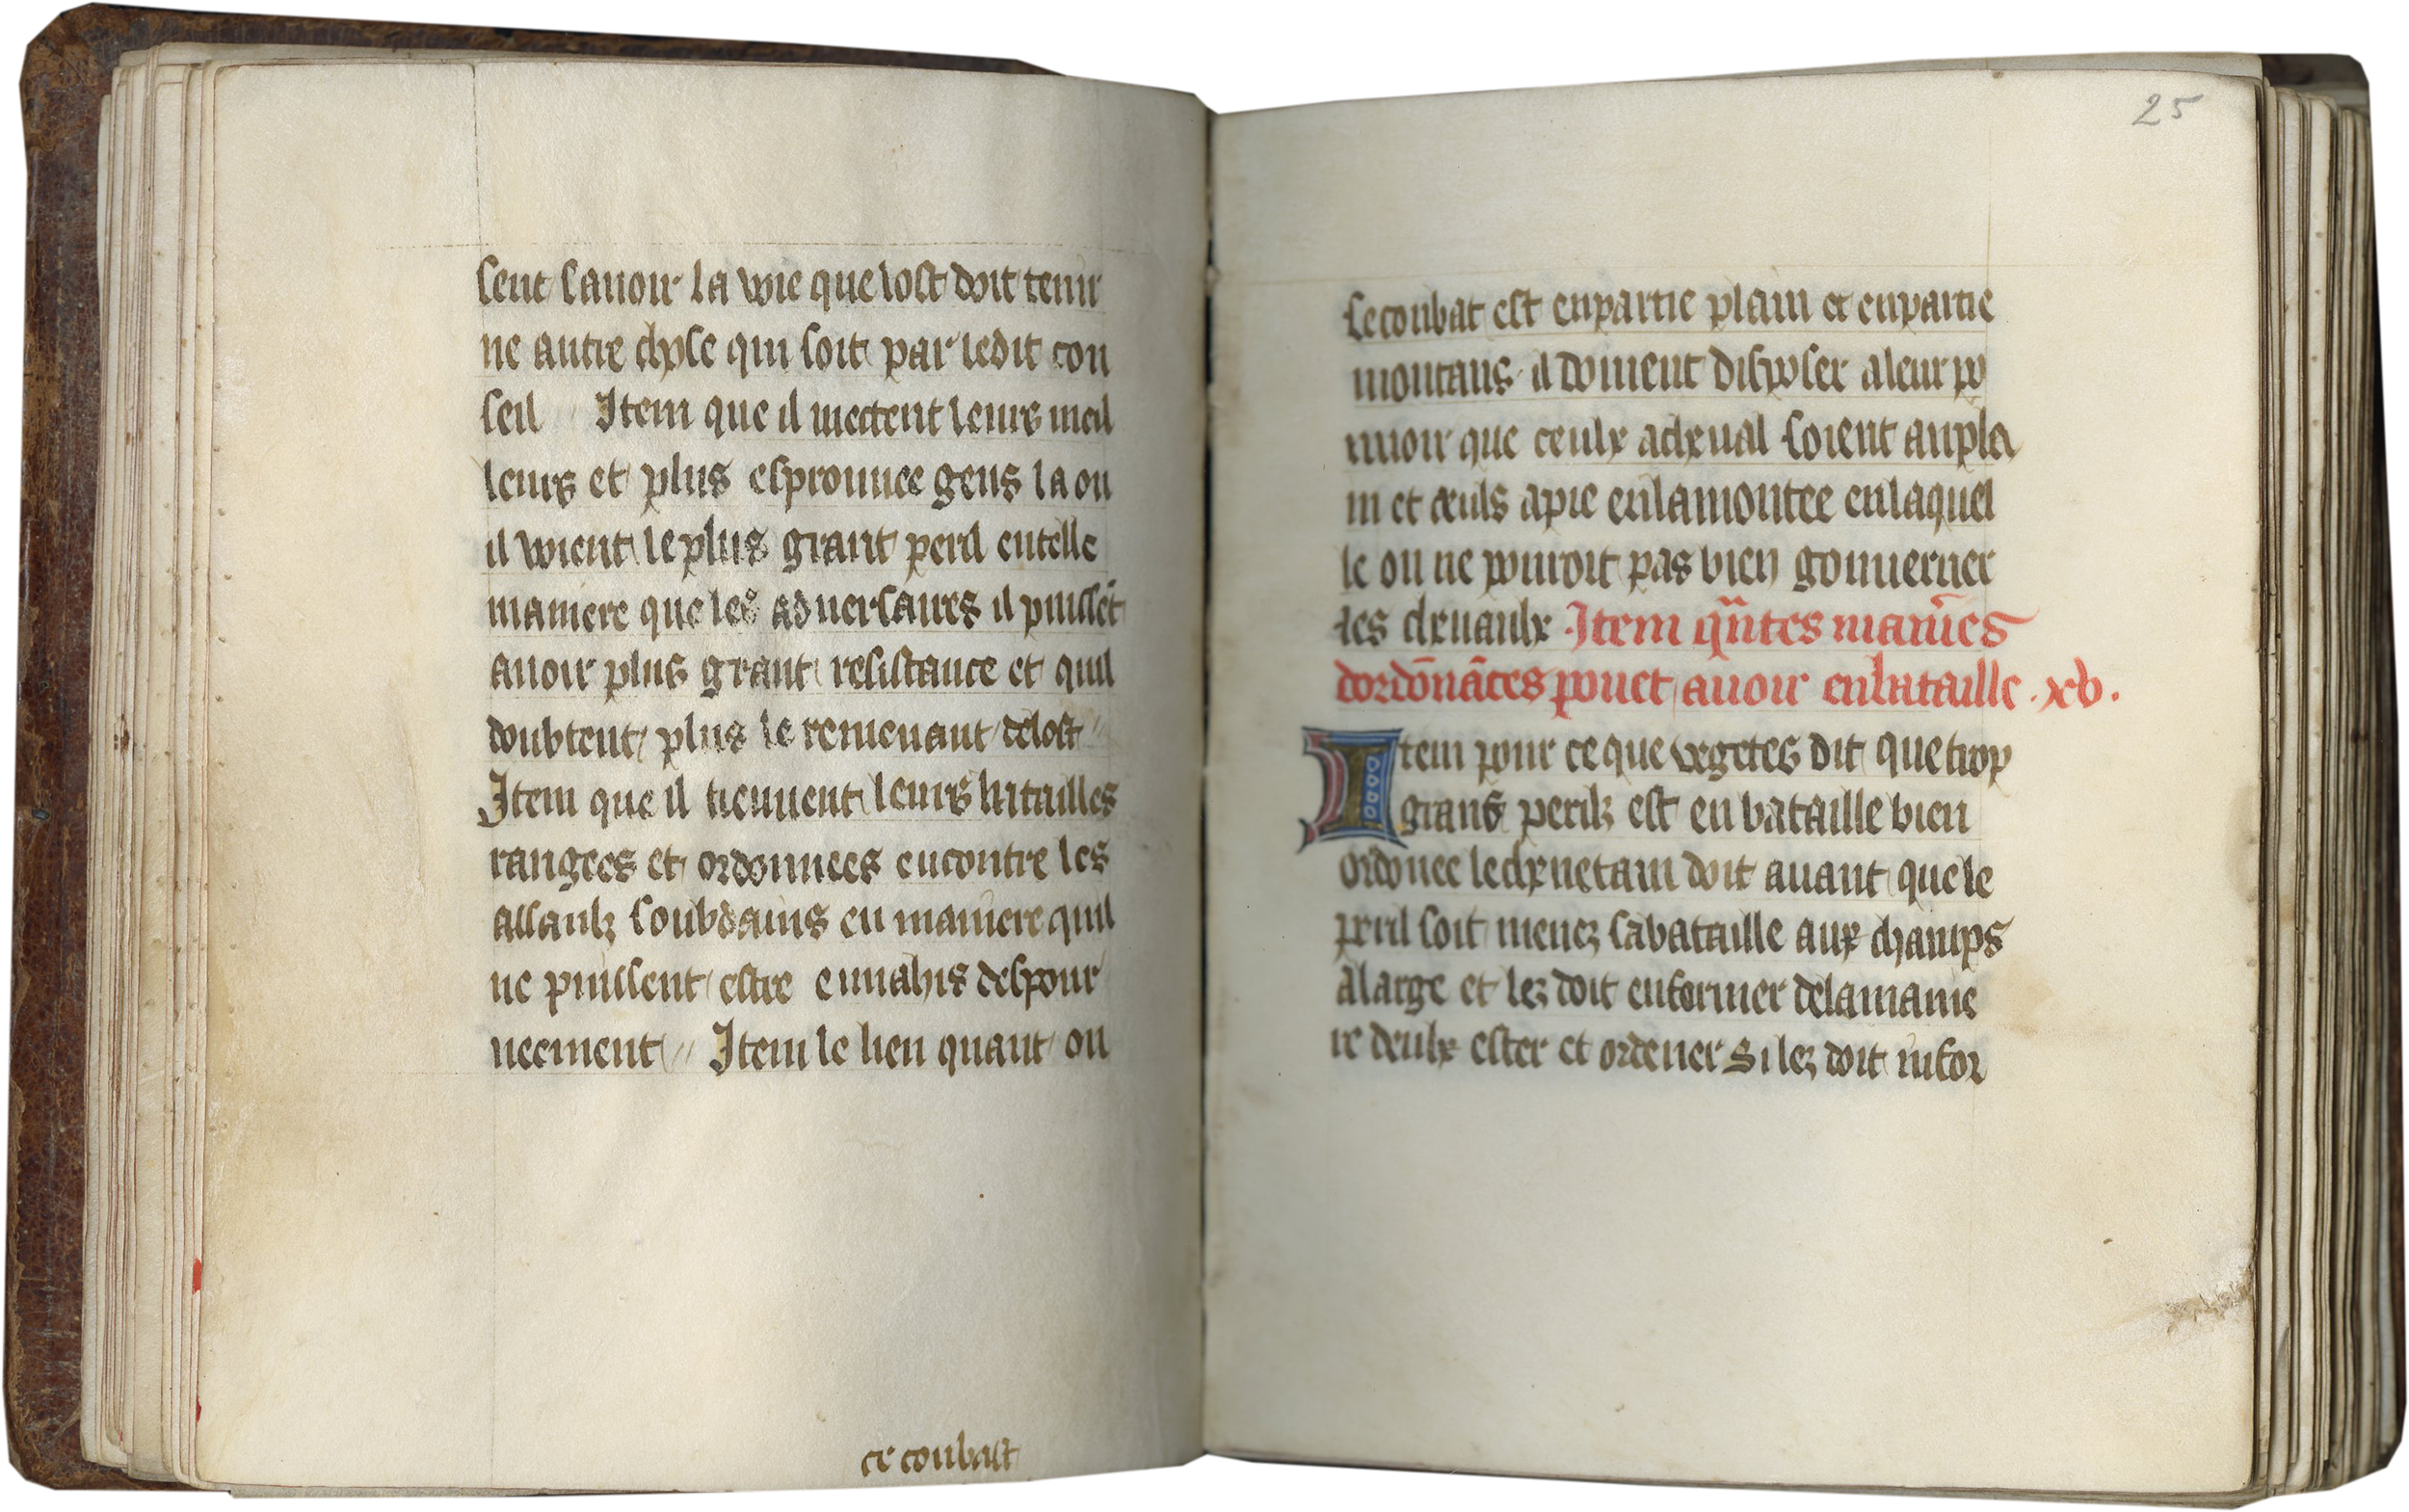 sent sauoir la voie que lost doit tenir
ne autre chose qui soit par ledit con
seil // Item que il mectent leurs meil
leurs et plus esprouuee gens la ou
il voient le plus grant peril en telle
maniere que les aduersaires il puissēt
auoir plus grant resistance et quil
doubtent plus le remenant de lost //
Item que il tiennent leurs batailles
rangees et ordonnees encontre les
assaulz soubdains en maniere quil
ne puissent estre enuahis despour
ueement // Item le lieu quant on
ce conbast
25
se conbat est en partie plain et en partie
montans il doiuent disposer a leur po
uuoir que ceulx a cheual soient au pla
in et ceuls a pie en la montee en laquel
le on ne pouroit pas bien gouuerner
les cheuaulx Item qūtes manīes
dordōnāces pouet auoir en bataille . xv.
Item pour ce que vegetes dit que trop
grans perilz est en bataille bien
ordonee le cheuetain doit auant que le
peril soit menez sa bataille aux champs
a large et lez doit enformer de la manie
re deulx ester et ordener Si lez doit infor